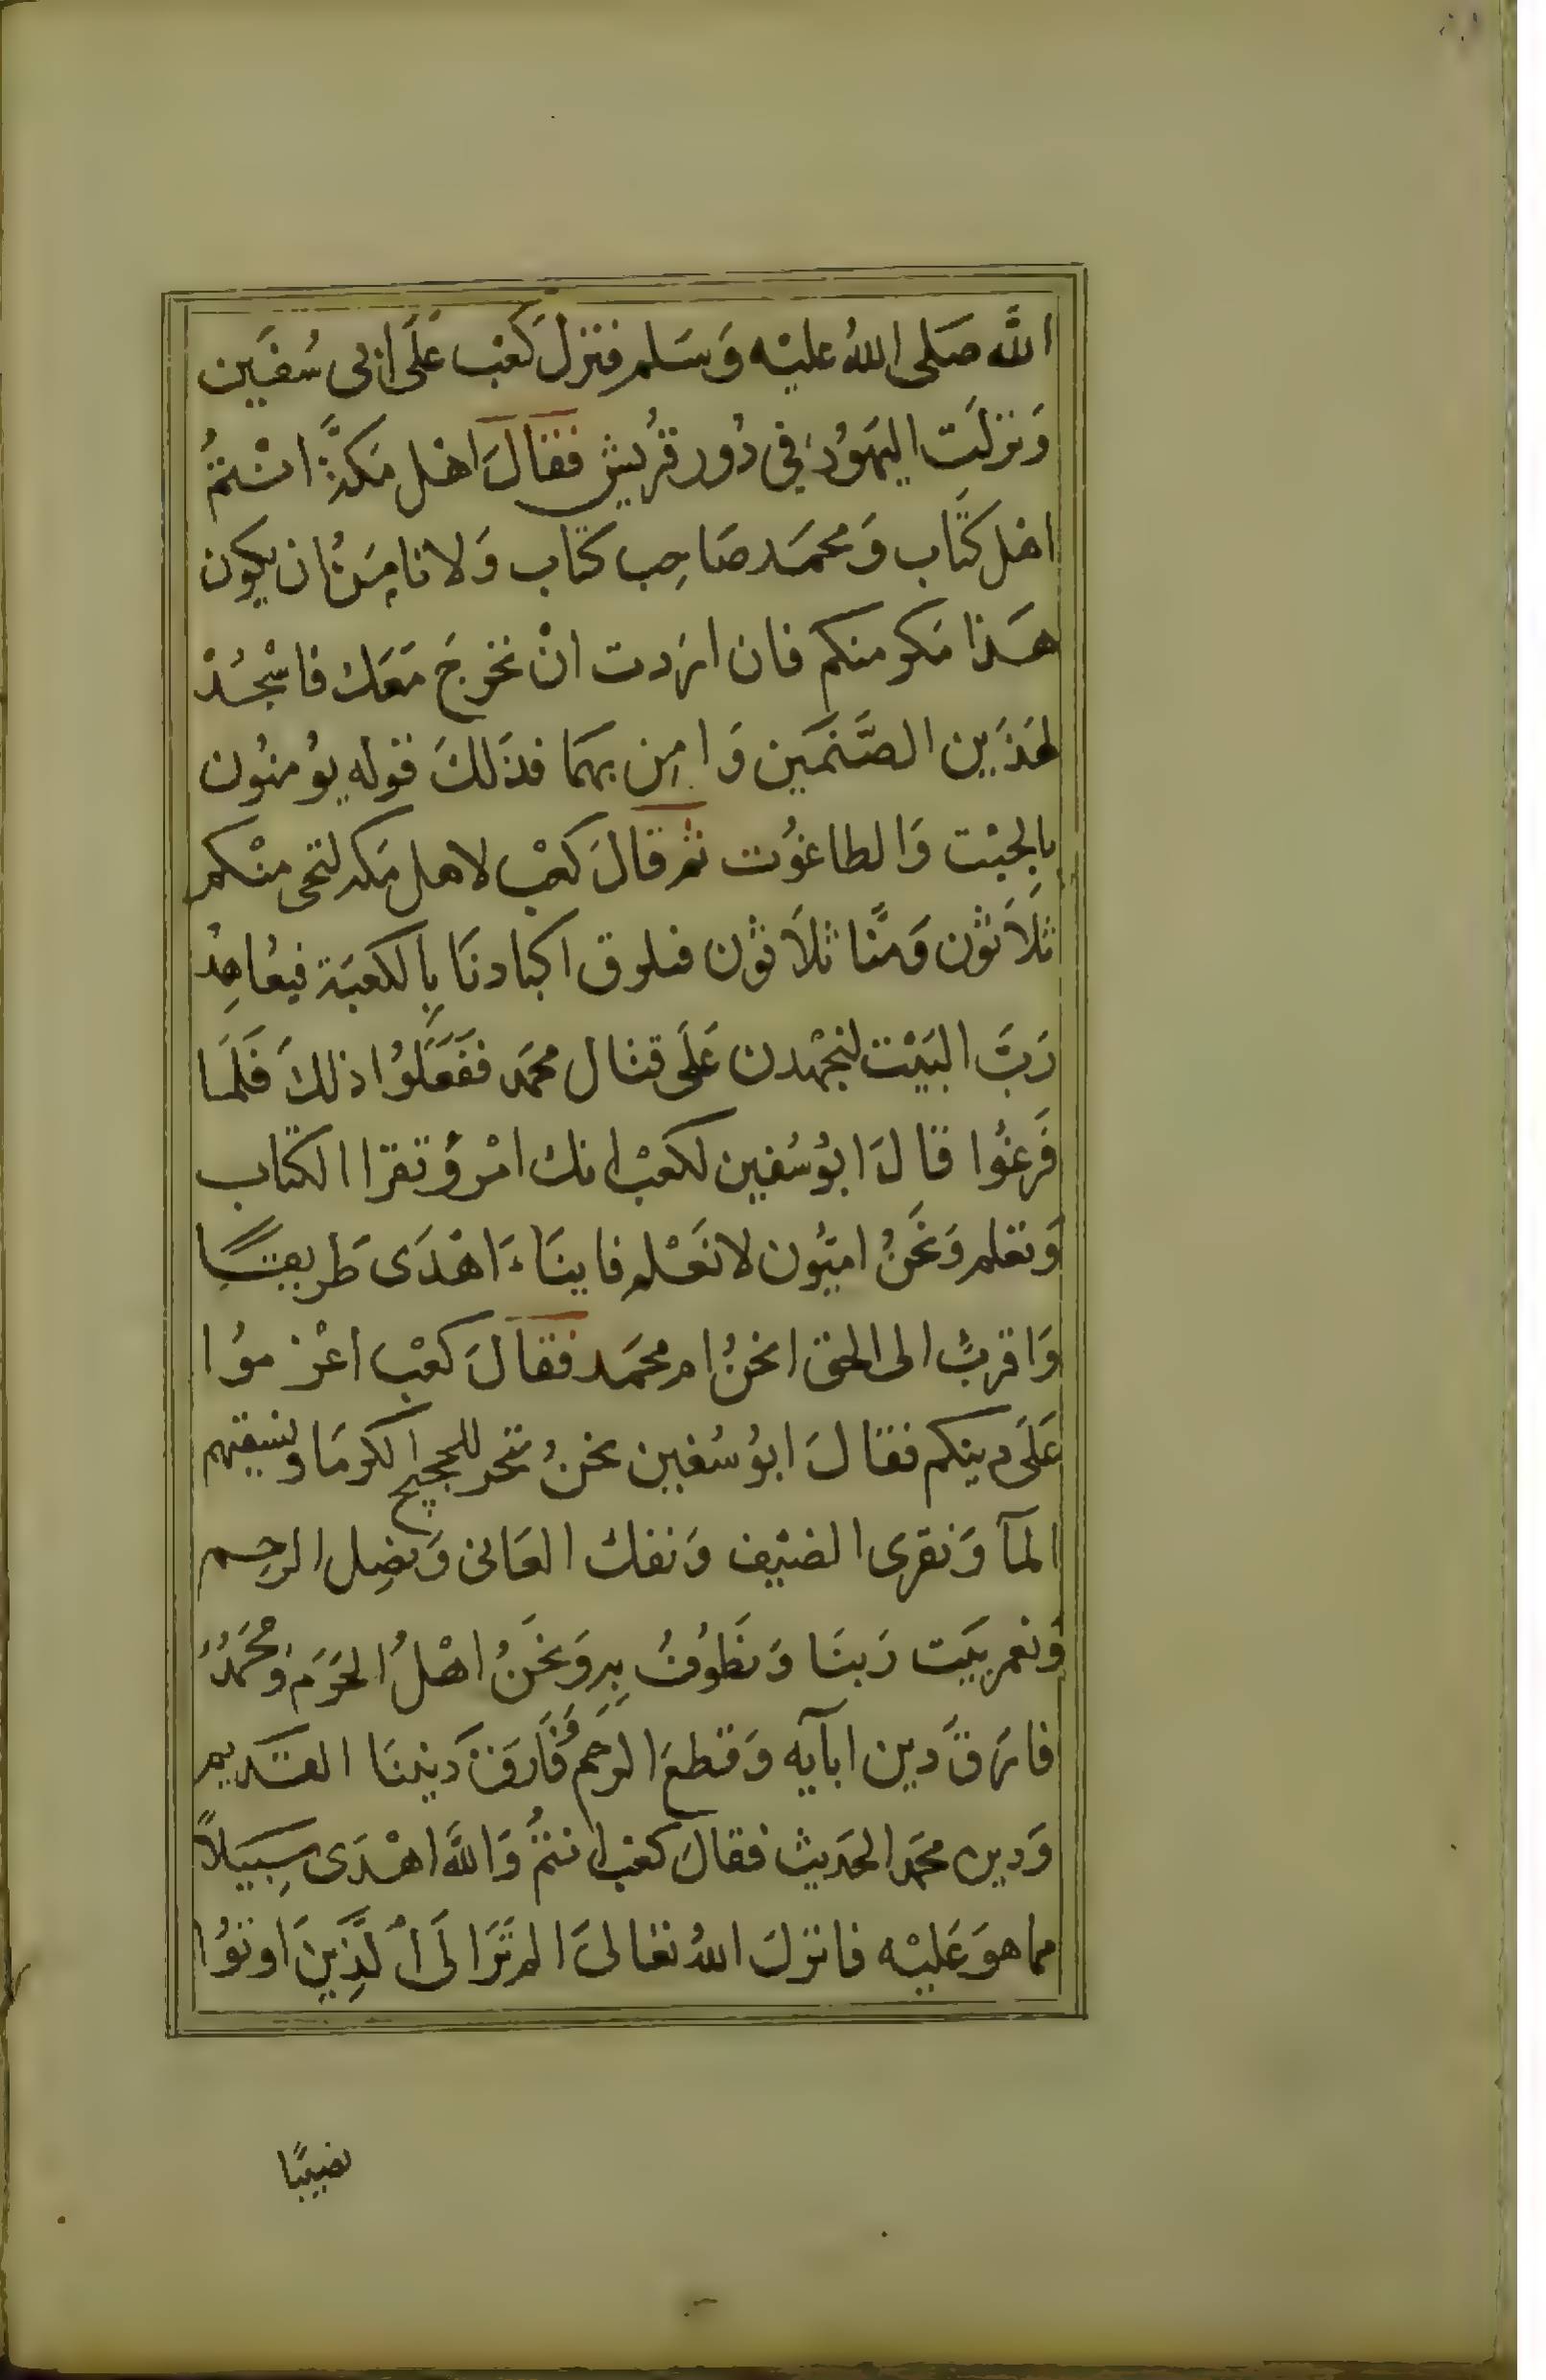 الله صَلى اللهُ عليْه وَسَلم فنزل كَعْب عَلَى ابى سُفيَن
وَنزلَت اليَهوُد فى دُور قرُيش فقالَ اهْل مَكةَّ انْتمُ
اهل كتَاب وَمحمَد صَاحِب كتَاب وَلا نامِنُ ان يكون
هَذا مَكر منكم فان اردت انْ نخرجَ مَعَك فاسْجُدْ
لهَذَين الصَّنمَين وَامِن بهمَا فذَلكَ قوله يوُمنوُن
بالجبْت وَالطاغوُت ثم قالَ كعْب لاهل مَكه لتجى منْكم
ثلاَثوُن وَمنَّا ثلاَثوُن فنلزق اكبادنَا بِالكعبَة فيعُاهِدُ
رَبَّ البَيْت لنجهْدن عَلَى قتال محمَد ففَعَلوُا ذلكَ فَلَمَا
فَرغوُا قالَ ابوُ سُفين لكعْب انك امْرؤُ تقرا الكتاب
وَتعلم وَنَحنُ اميوُن لا نَعْلم فاينَاءَ اهْدَى طَريقًــا
وَاقربُ الى الحق انحنُ ام محمَد فقالَ كعْب اعْرضوُا
عَلَى دينكم فقالَ ابوُ سُفين نحنُ ننحر للحجيج الكومَا ونسقيهم
المآ وَنقرى الضيْف وَنفك العَانى وَنصِل الرحِم
وَنعمر بَيَت رَبنَا وَنَطوُفُ بِهِ وَنَحَنُ اهْلُ الحَرَم وَمُحَمدُ
فارَقَ دين ابآيه وَقطعَ الرحم وَفَارَقَ ديننَا القَديم
وَدين محَمد الحَديث فقالَ كعْب انتمُ وَاللَّه اهْدَى سَبِيَلاً
مما هوَ عَليْه فانزلَ اللهُ تعالىَ الم تَرَ الَى الَّذِينَ اوتوُا
نصيبًا